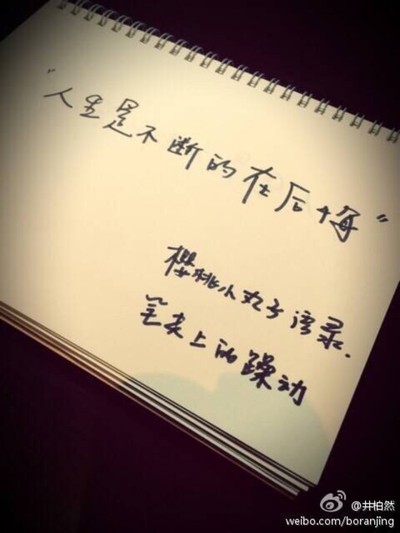 "人生是不断的在后悔"
樱桃小丸子语录.
笔尖上的躁动
@井柏然
weibo.com/boranjing